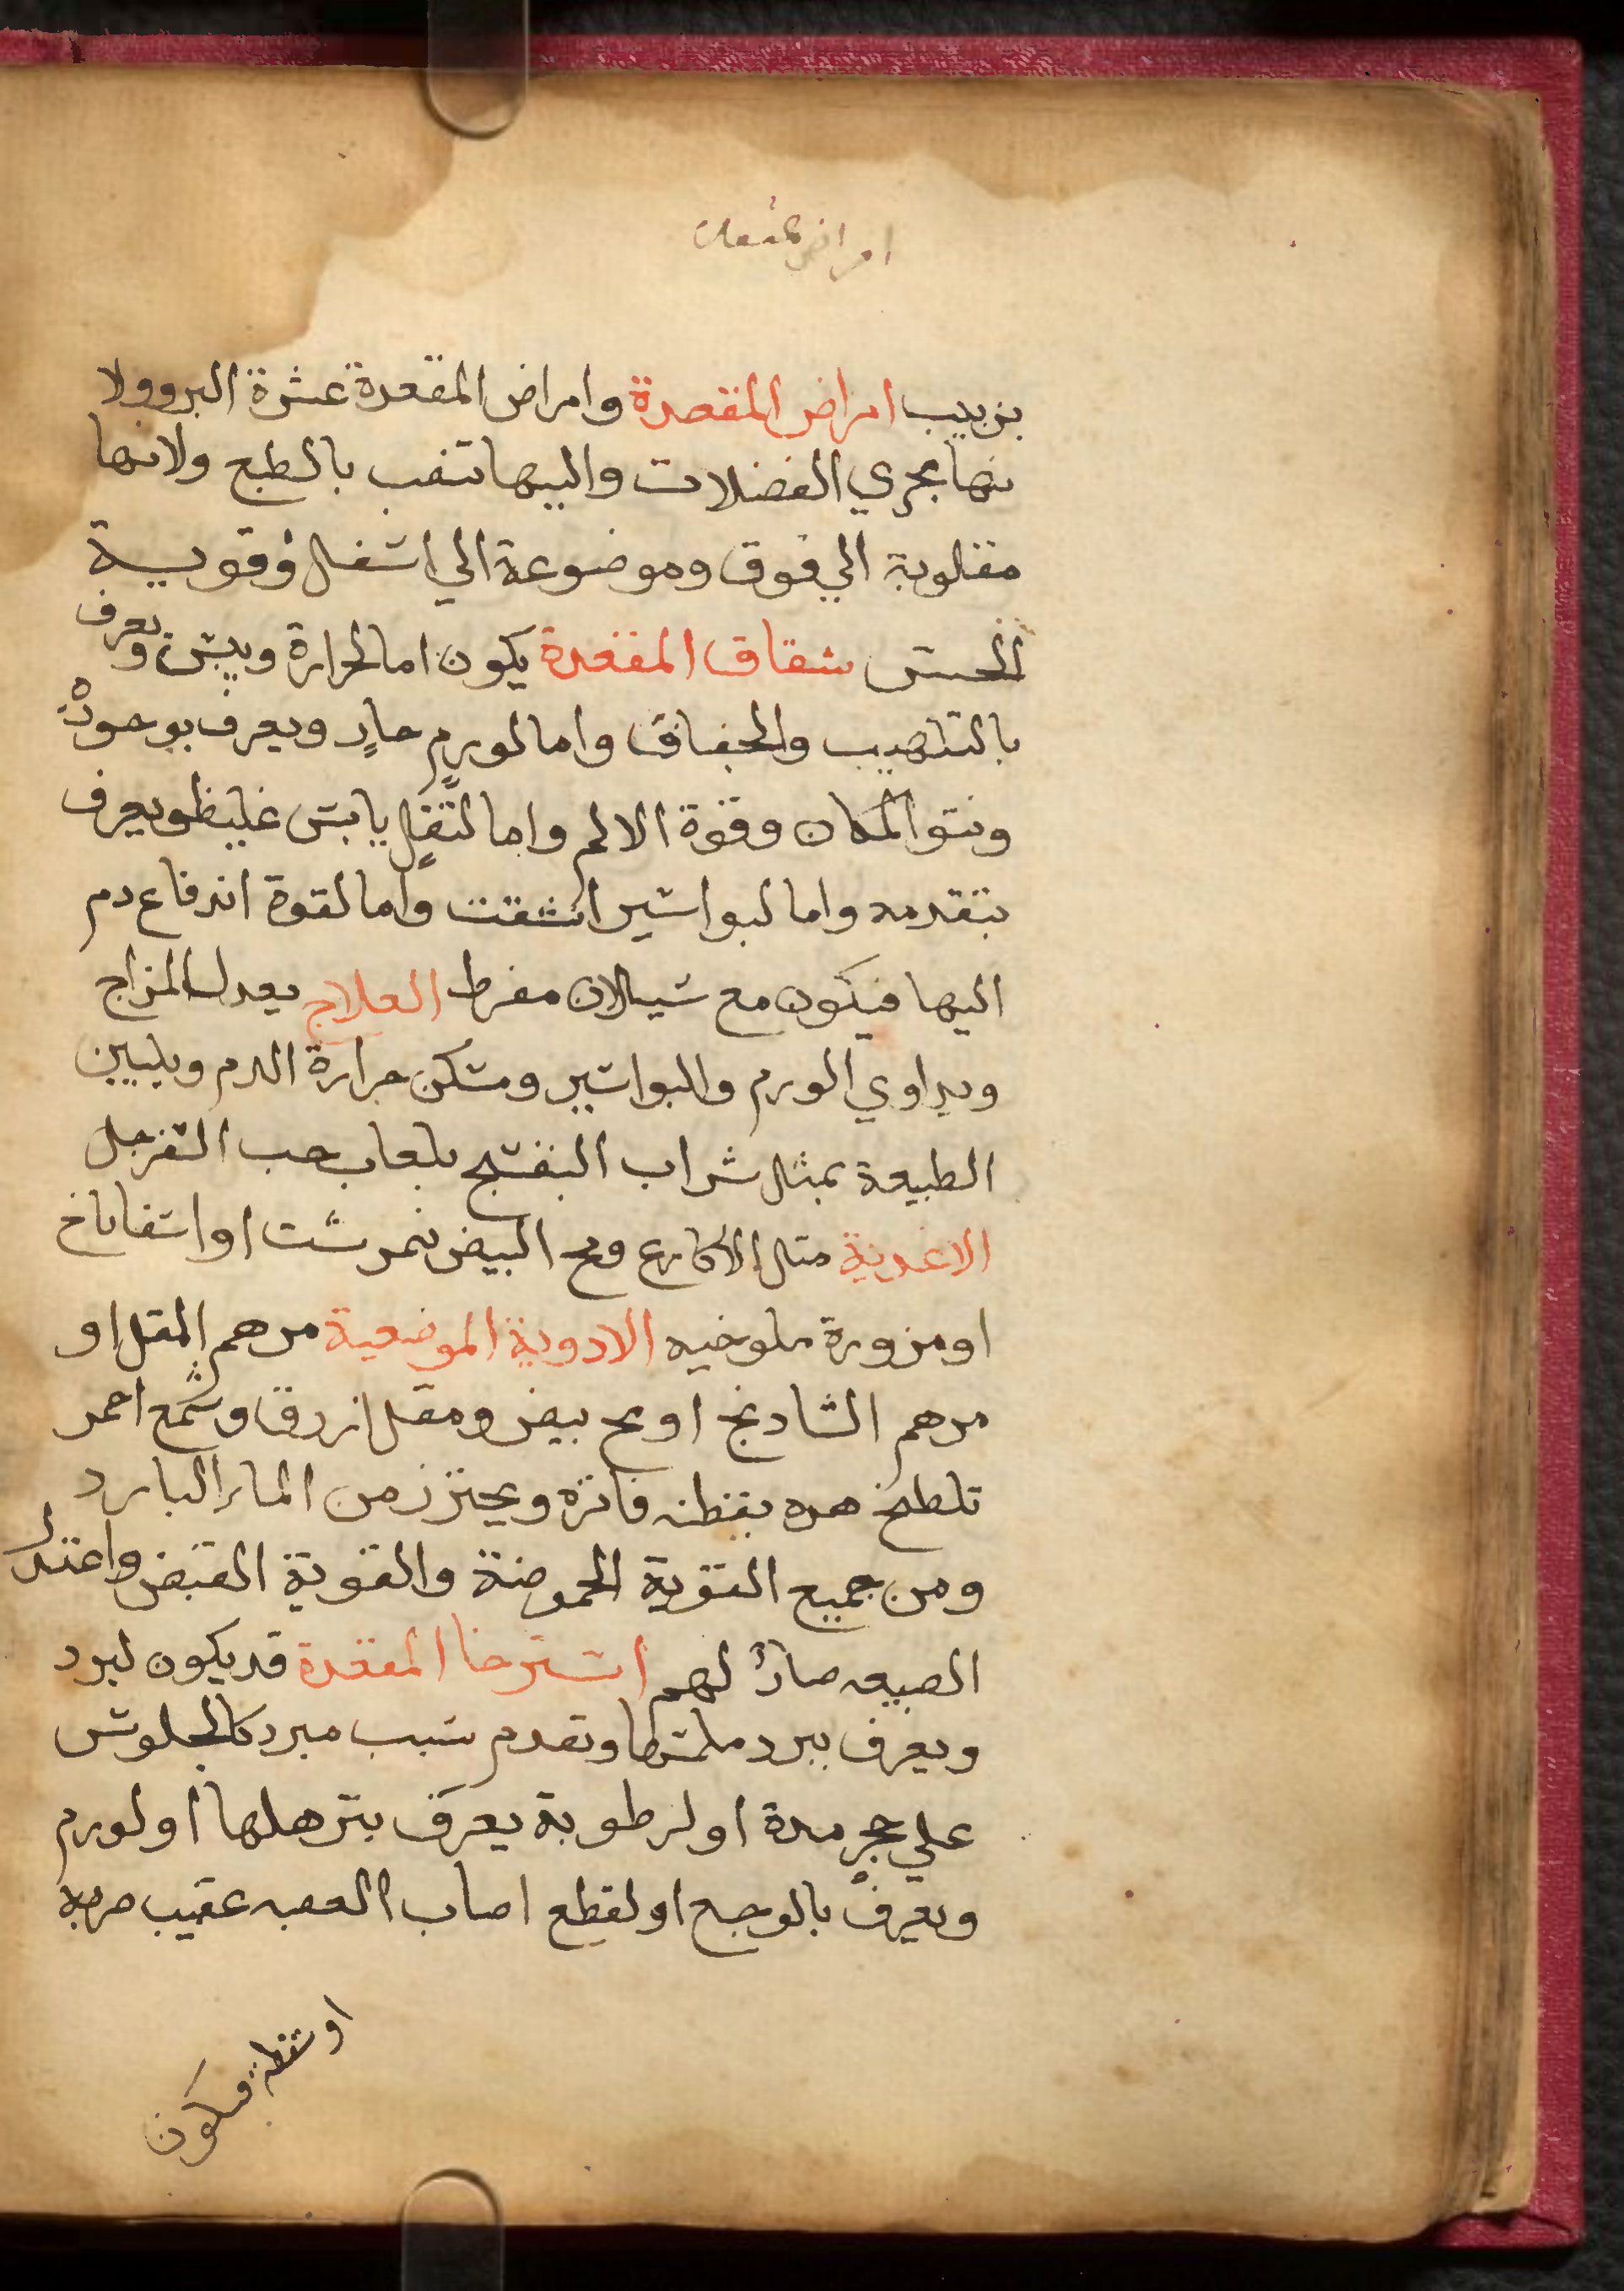 امراض المقعدة
بزبيب امراض المقعدة وامراض المقعدة عشرة البرو ولا
نها مجري الفضلات واليها تنصب بالطبع ولانها
مقلوبة الي فوق وموضوعة الي اسفل وقوية
الحس شقاق المقعدة يكون اما لحرارة ويبس ويعرف
بالتلهيب والجفاف واما لورم حار ويعرف بوجوده
ونتو المكان وقوة الالم واما لثفل يابس غليظ ويعرف
بتقدمه واما لبواسير انشقت واما لقوة اندفاع دم
اليها فيكون مع سيلان مفرط العلاج يعدل المزاج
ويداوي الورم والبواسير وتسكن حرارة الدم ويليين
الطبيعة بمثل شراب البنفسج بلعاب حب السفرجل
الاغدية مثل الاكارع ومح البيض نمرشت او اسفاناخ
او مزورة ملوخيه الادوية الموضعية مرهم المقل او
مرهم الشادنج او مح بيض ومقل ازرق وشمع احمر
تلطخ هده بقطنه فاتره ويحترز من الماء البارد
ومن جميع القوية الحموضة والقوية القبض واعتدال
الطبيعه صالح لهم استرخا المقعدة قد يكون لبرد
ويعرف ببرد ملمسها وتقدم سبب مبرد كالجلوس
علي حجر مدة او لرطوبة يعرف بترهلها او لورم
ويعرف بالوجع او لقطع اصاب العصبه عقيب ضربة
او سقطة فيكون